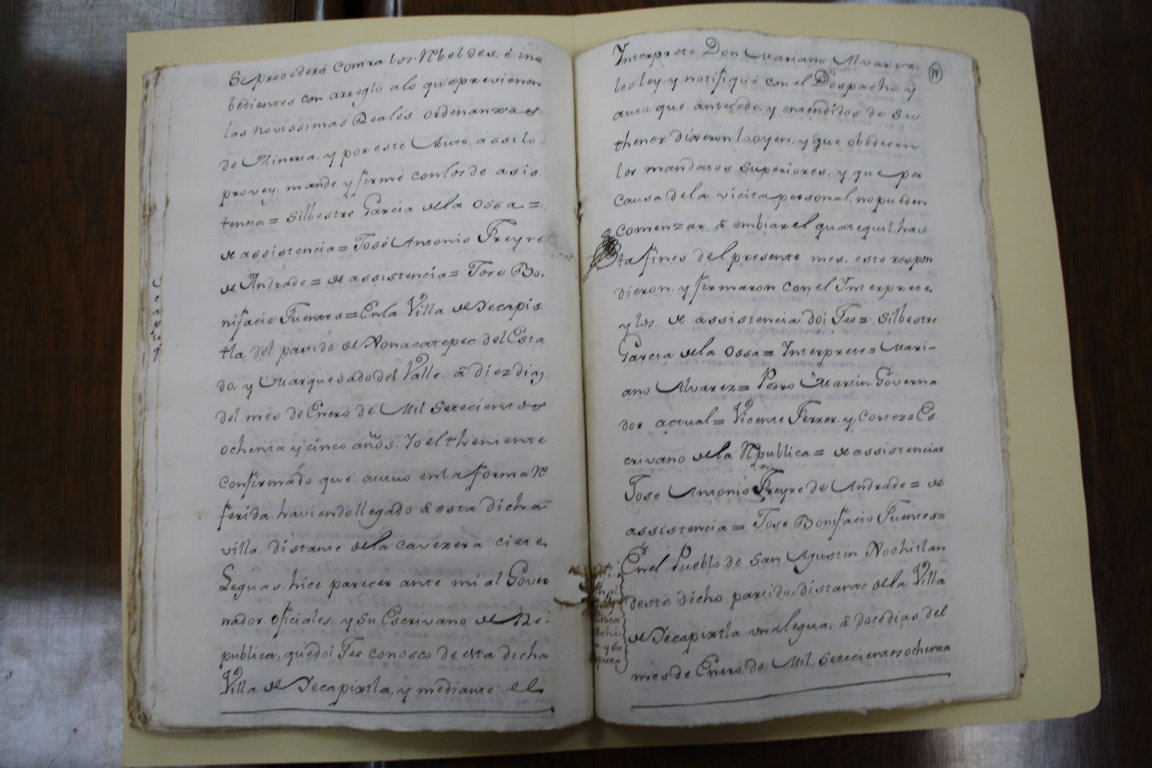 Se procederá contra los Rbeldes, é ino
bedientes con arreglo a lo qᵉ previenen
las novissimas Reales ordenanzas
de Mineria, y por este Auto, assi lo
provey, mandé y firmé con los de asis
tencia = Silbestre Garcia de la Ossa =
de assistencia = José Antonio Freyre
de Andrade = de assistencia = Jose Bo,
nifacio Fuentes = En la Villa de Tecapis
tla del partido de Xonacatepec del Esta
do, y Marquesado del Valle, á diez dias
del mes de Enero de Mil Setecientos
ochenta y cinco años. Yo el theniente
confirmado que actuo en la forma Re
ferida, haviendo llegado á esta dicha
villa, distante de la cavezera ciete
Leguas, hice parecer ante mi al Gover
nador, oficiales, y su Escrivano de Re-
publica, que doi Fee conosco de esta dicha
Villa de Tecapixtla, y mediante el
19
Interprete Don Mariano Alvarez,
les ley, y notifiqué con el Despacho, y
auto que antecede, y entendidos de su
thenor dixeron lo oyen, y que obedecen
los mandatos Superiores, y que por
causa de la vicita personal, no pueden
comenzar á embiar el quatequil, has
ta fines del presente mes, esto respon
dieron, y firmaron con el Interprete
y los de assistencia doi Fee = Silbestre
Garcia de la Ossa = Interprete = Mari-
ano Alvarez = Pedro Martin Governa
dor actual = Vicente Ferrer, y Cortez = Es
crivano de la Rpublica = de assistencia =
Jose Antonio Freyre de Andrade = de
assistencia = Jose Bonifacio Fuentes =
En el Pueblo de San Agustin Xochitlan
deste dicho partido, distante de la Villa
de Tecapixtla, una legua, á doce dias del
mes de Enero de Mil Setecientos ochenta